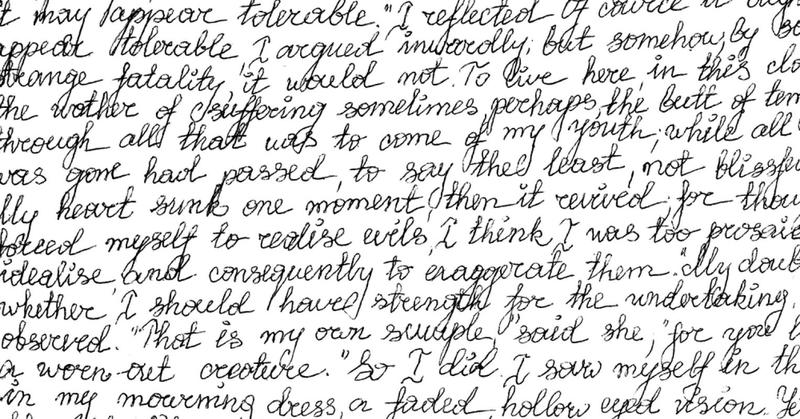 t may appear tolerable." I reflected. Of course it
appear tolerable, I argued inwardly; but somehow, by
strange fatality, it would not. To live here, in this clo
the wather of suffering sometimes, perhaps, the butt of tem
through all that was to come of my youth; while all
was gone had passed, to say the least, not blissfu
My heart sunk one moment, then it revived; for thou
forced myself to realise evils, I think I was too prosaic
idealise, and consequently to exaggerate them. "My doub
whether I should have strength for the undertaking,
observed. "That is my own scruple," said she, "for you l
a worn-out creature." So I did. I saw myself in th
in my mourning dress, a faded, hollow eyed vision. Ye